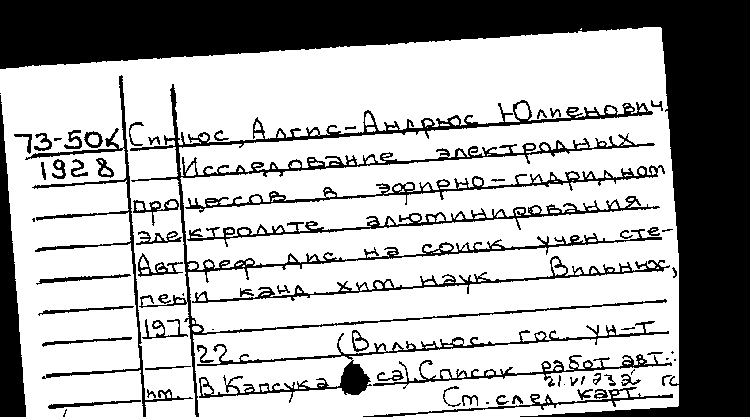 73-50к Синюс, Алгис-Андрюс Юлиенович.
1928 Исследование электродных
процессов в эфирно-гидридном
электролите алюминирования.
Автореф. дис. на соиск. учен. сте-
пени канд. хим. наук. Вильнюс,
1973.
22 с. (Вильнюс. гос. ун-т
пт. В. Капсука са). Список работ авт.:
См. след. карт.